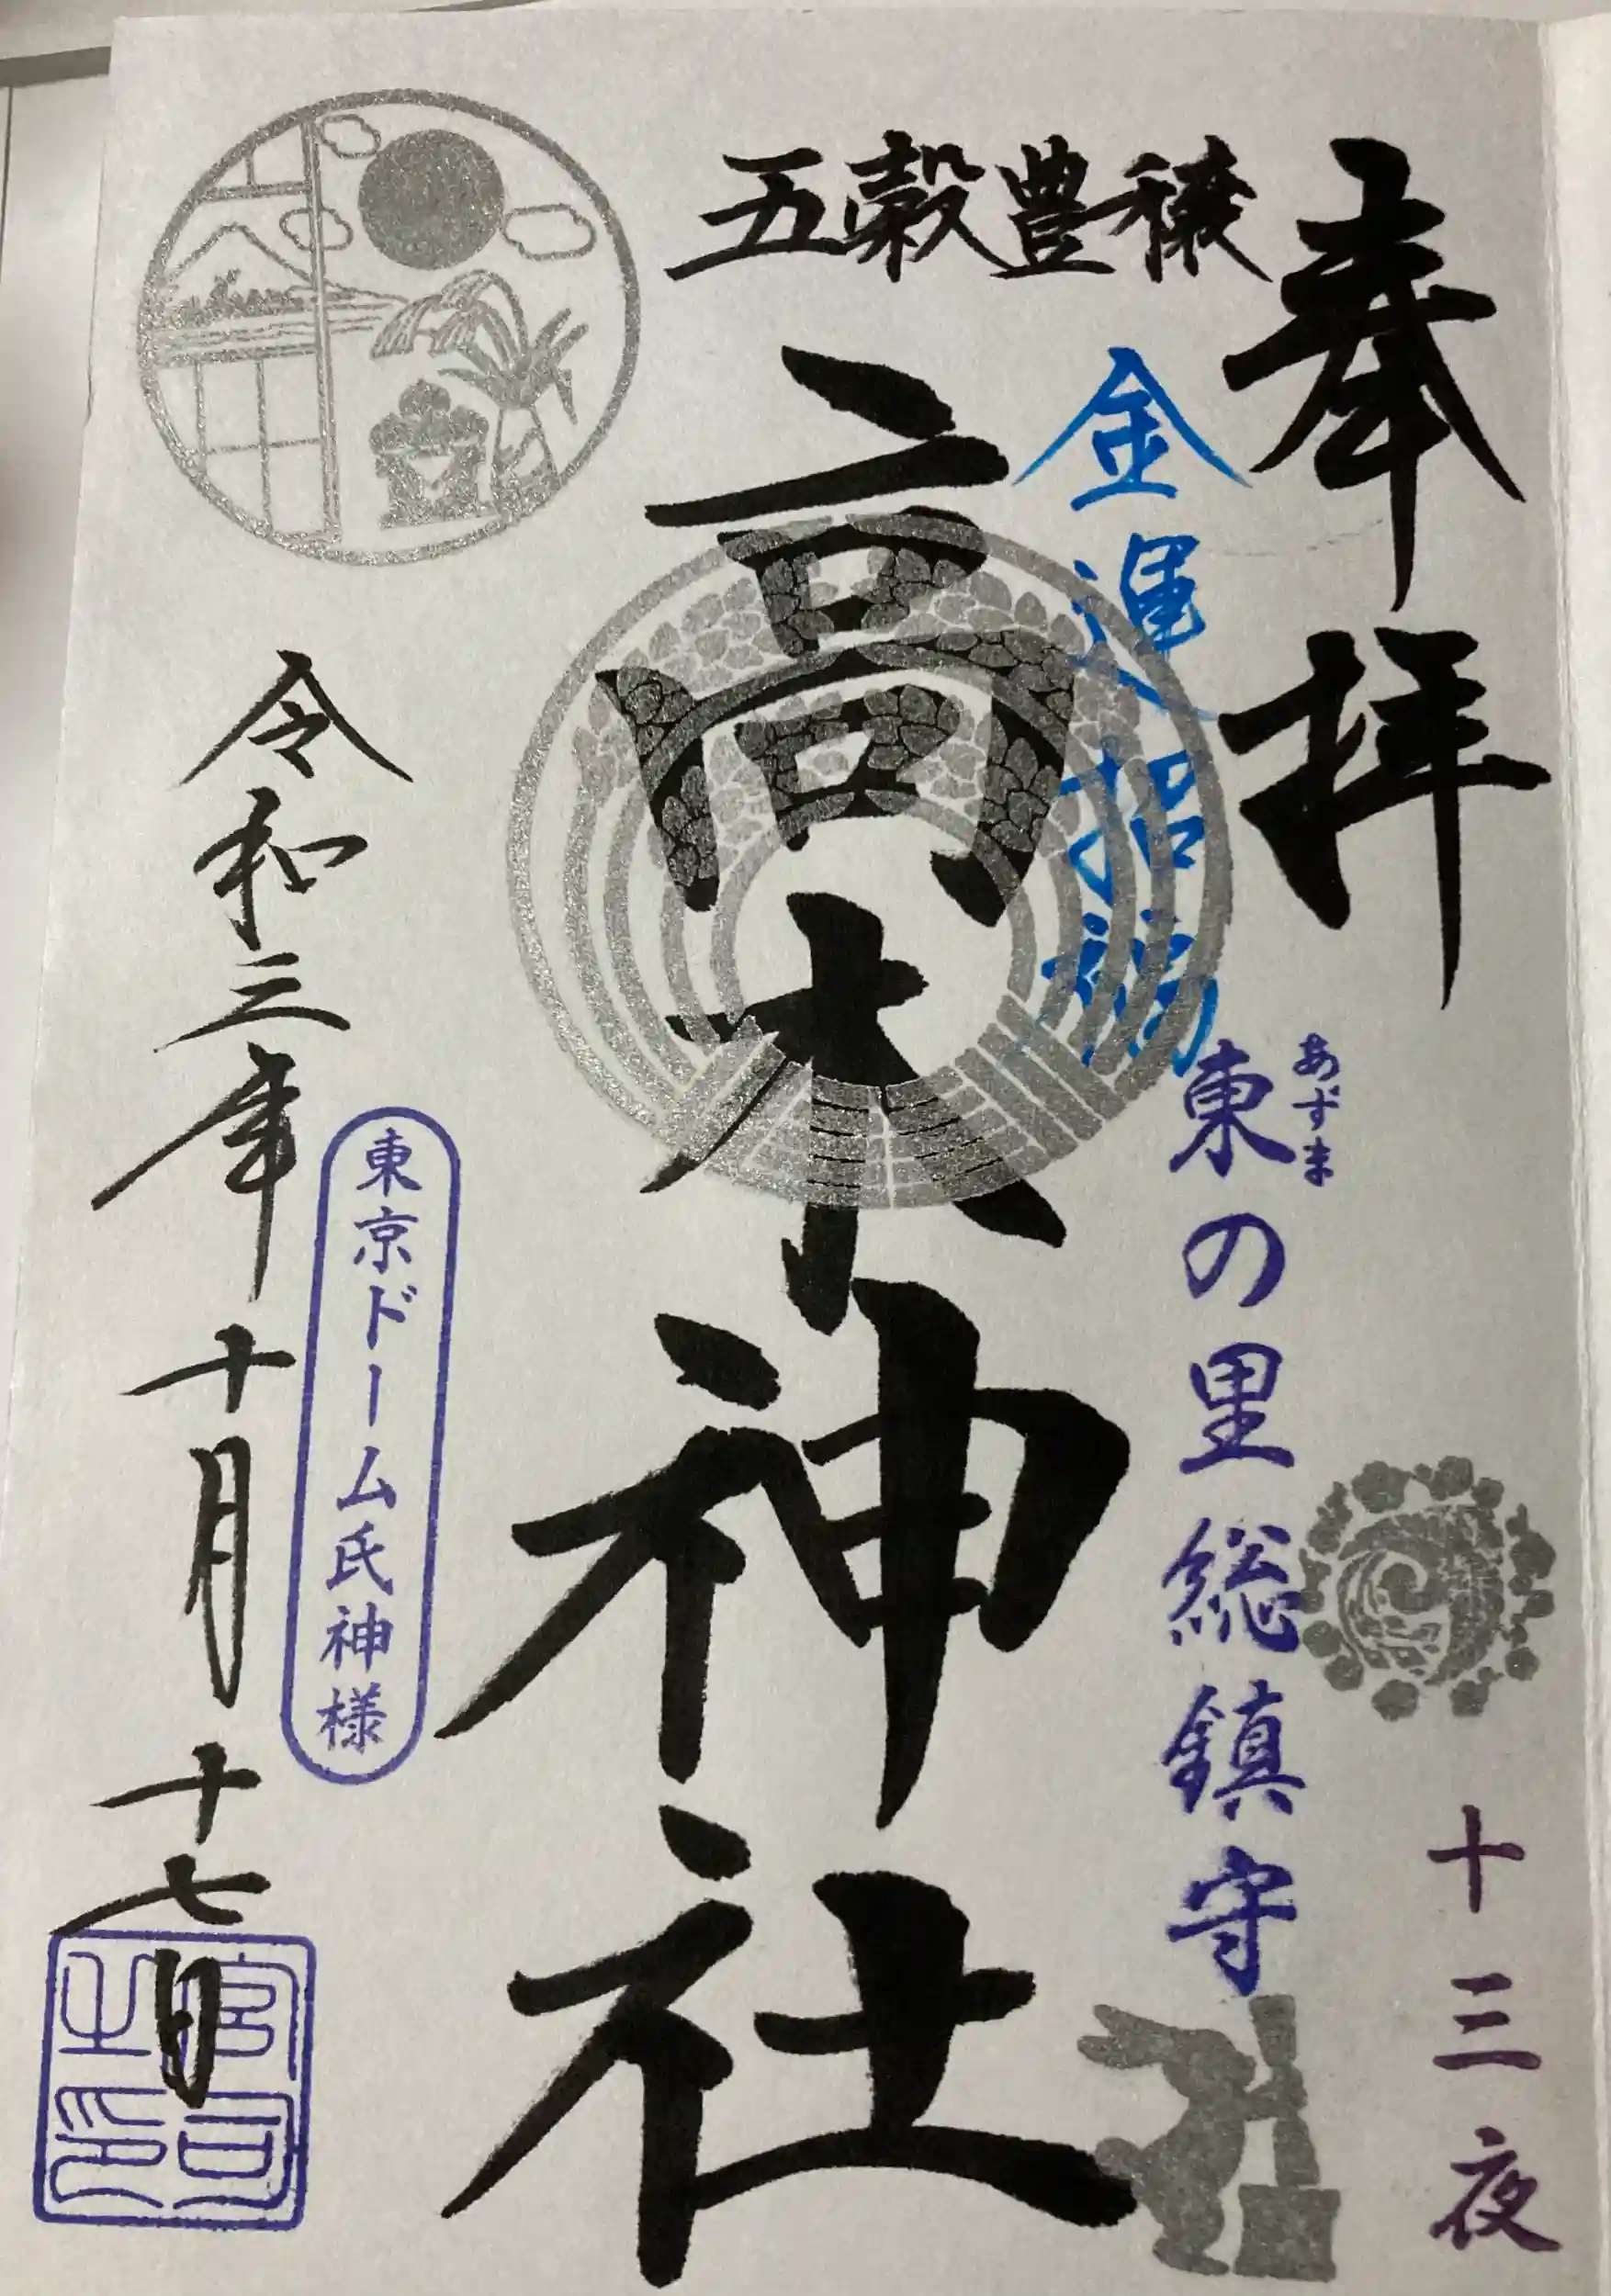 奉拝
十三夜
あずま
東の里総鎮守
五穀豊穣
金運招福
高木神社
東京ドーム氏神様
令和三年十月十七日
宮司之印